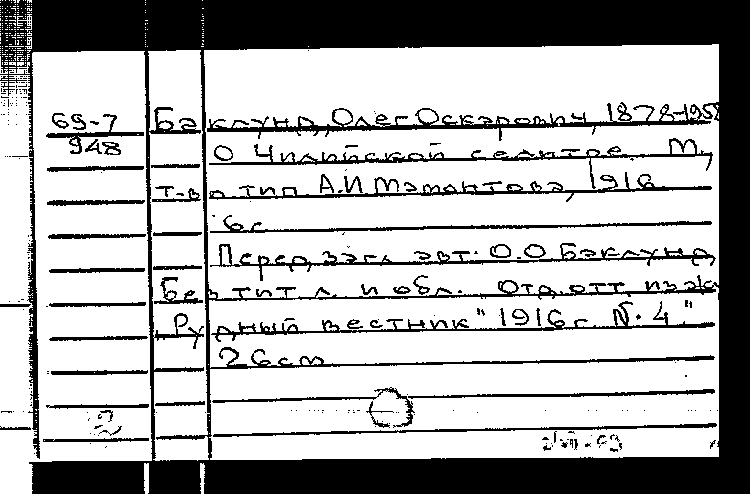 69-7
948
Баклунд, Олег Оскарович, 1878-1958
О Чилийской селитре. М.,
т-во тип А.И Мамонтова, 1916
6с
Перед загл. авт: О.О Баклунд,
Без тит л. и обл. Отд. отт. из ж
"Рудный вестник" 1916г. №. 4"
26см
2
2/VII-69